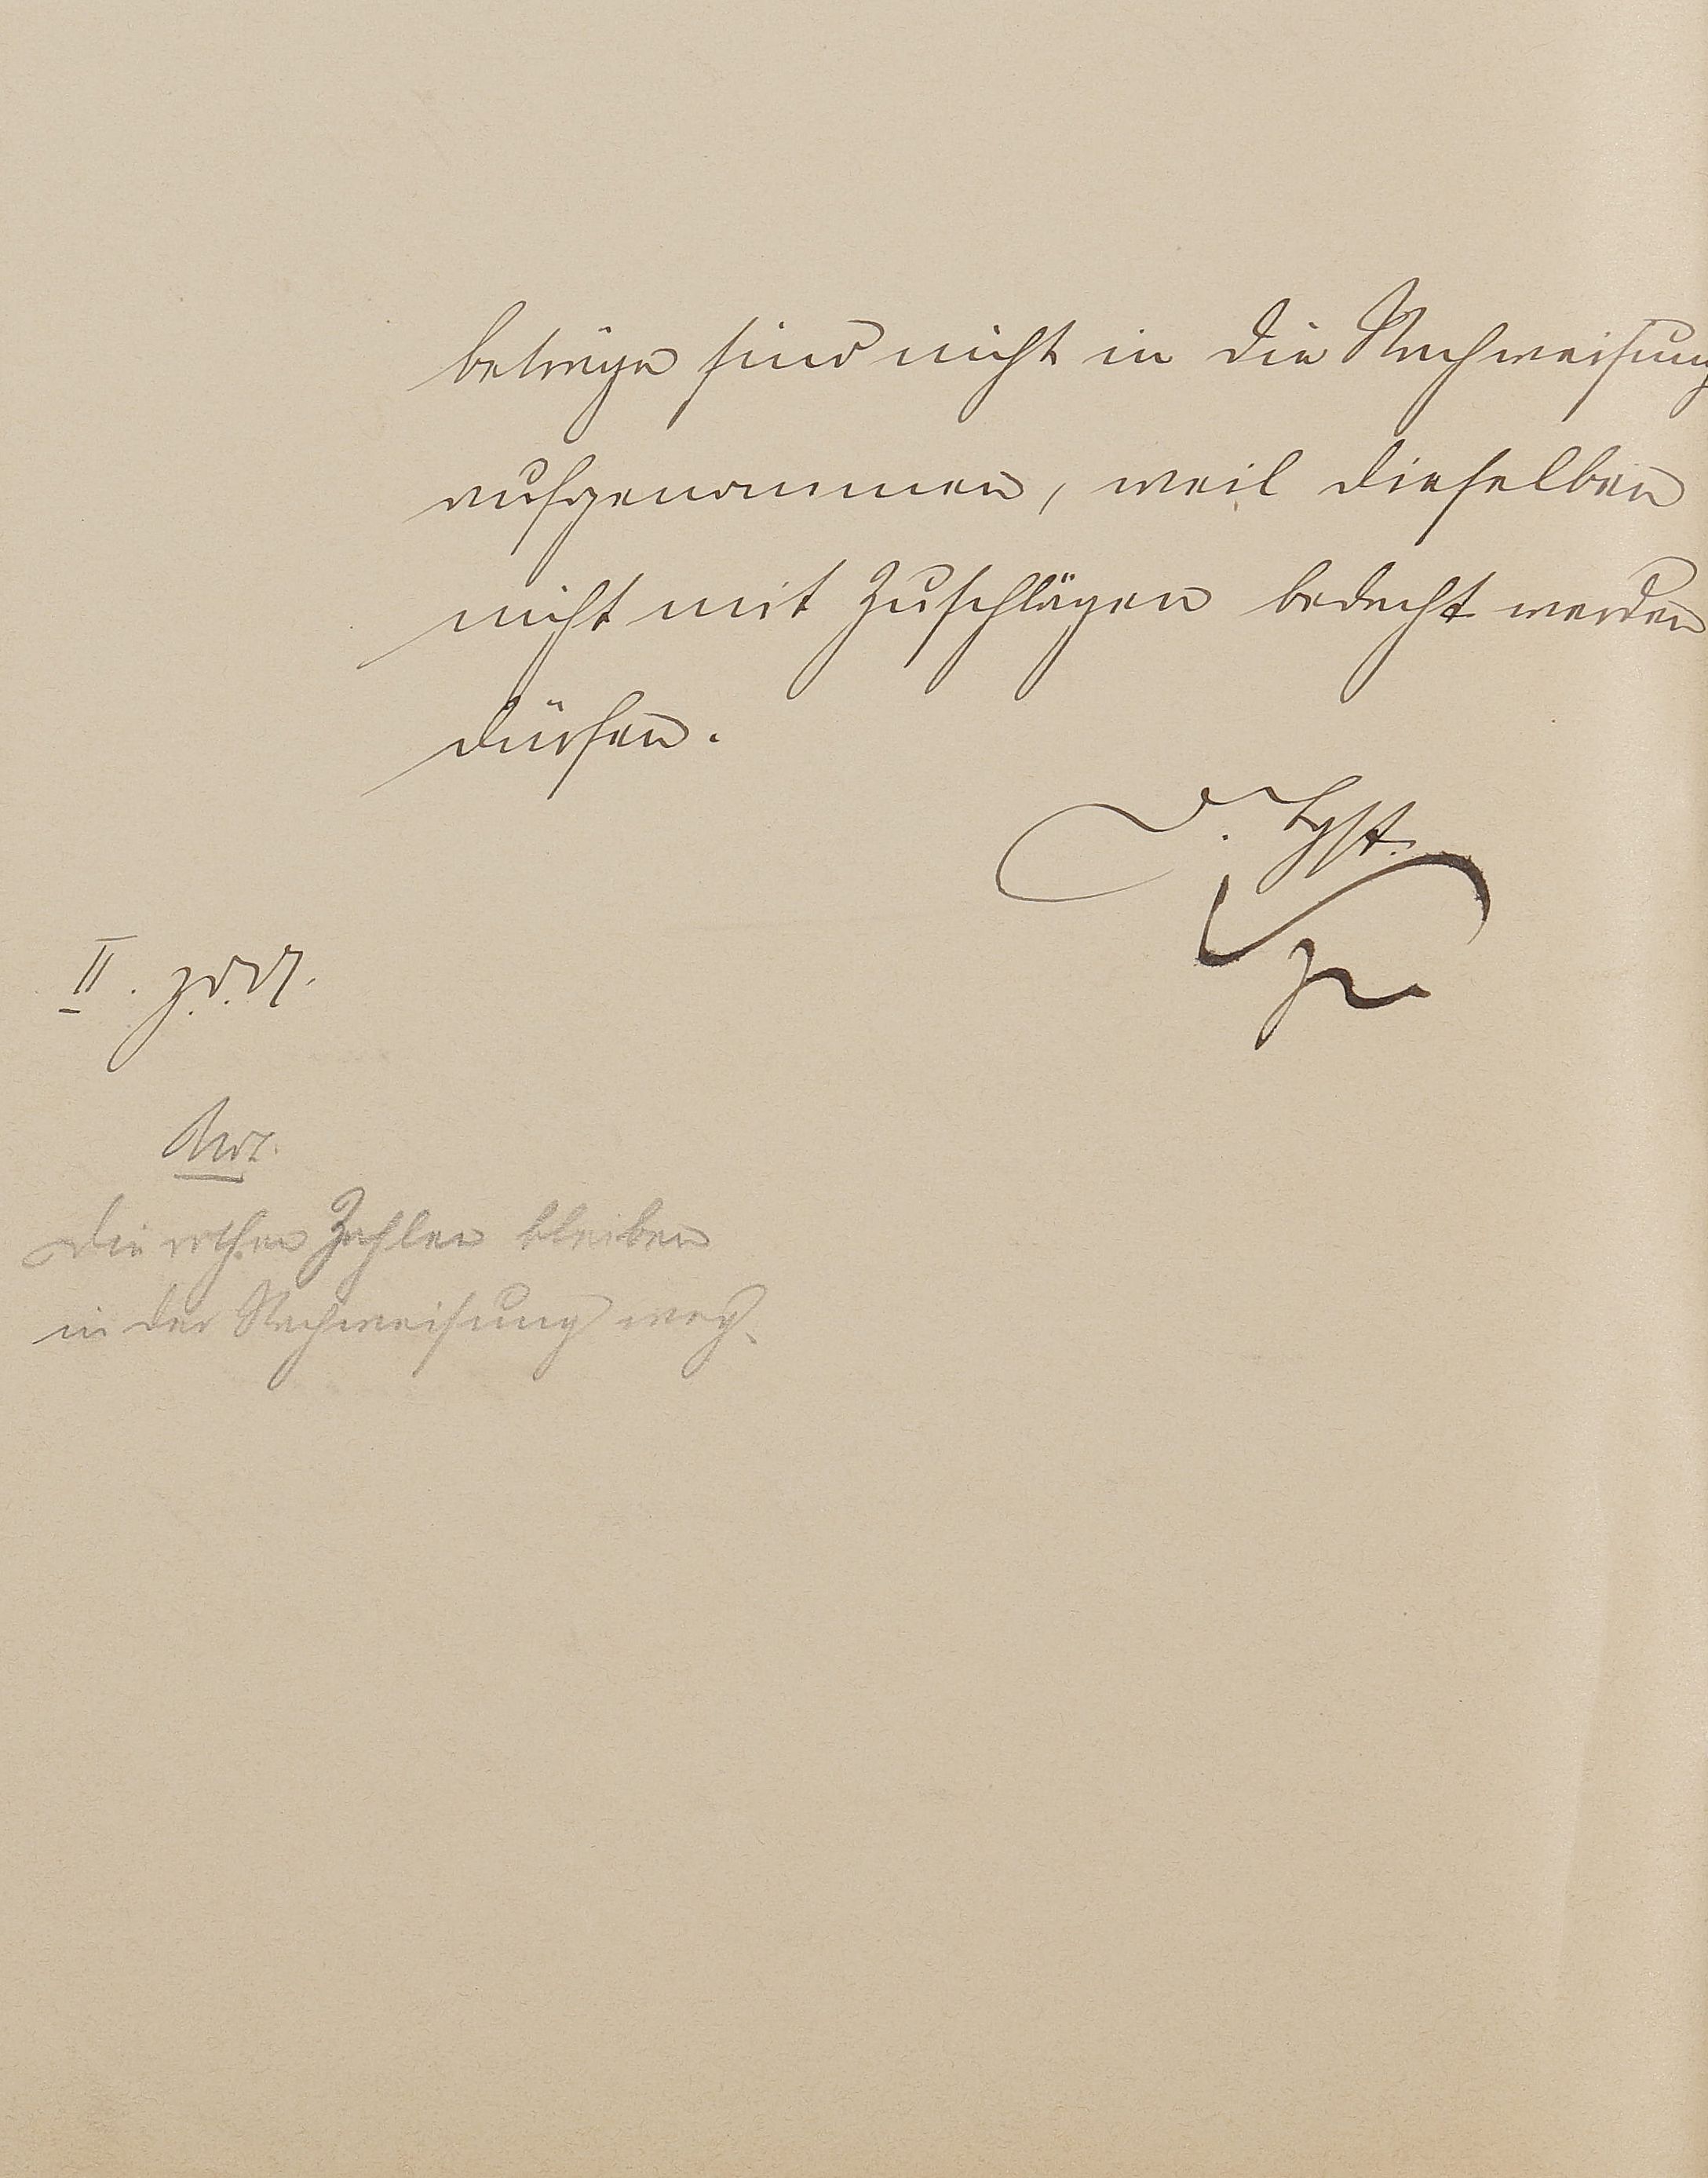 beträge sind nicht in die Nachweisung
aufgenommen, weil dieselben
nicht mit Zuschlägen bedacht werden
dürfen.
D.
II. z. d. A.
Not.
Die rothen Zahlen bleiben
in der Nachweisung weg.